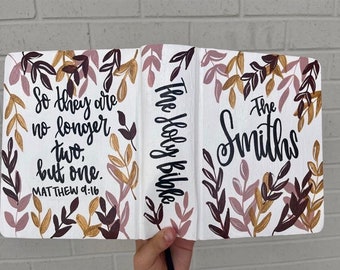 So they are
no longer
two,
but one.
MATTHEW 9:16
The Holy Bible
The
Smiths